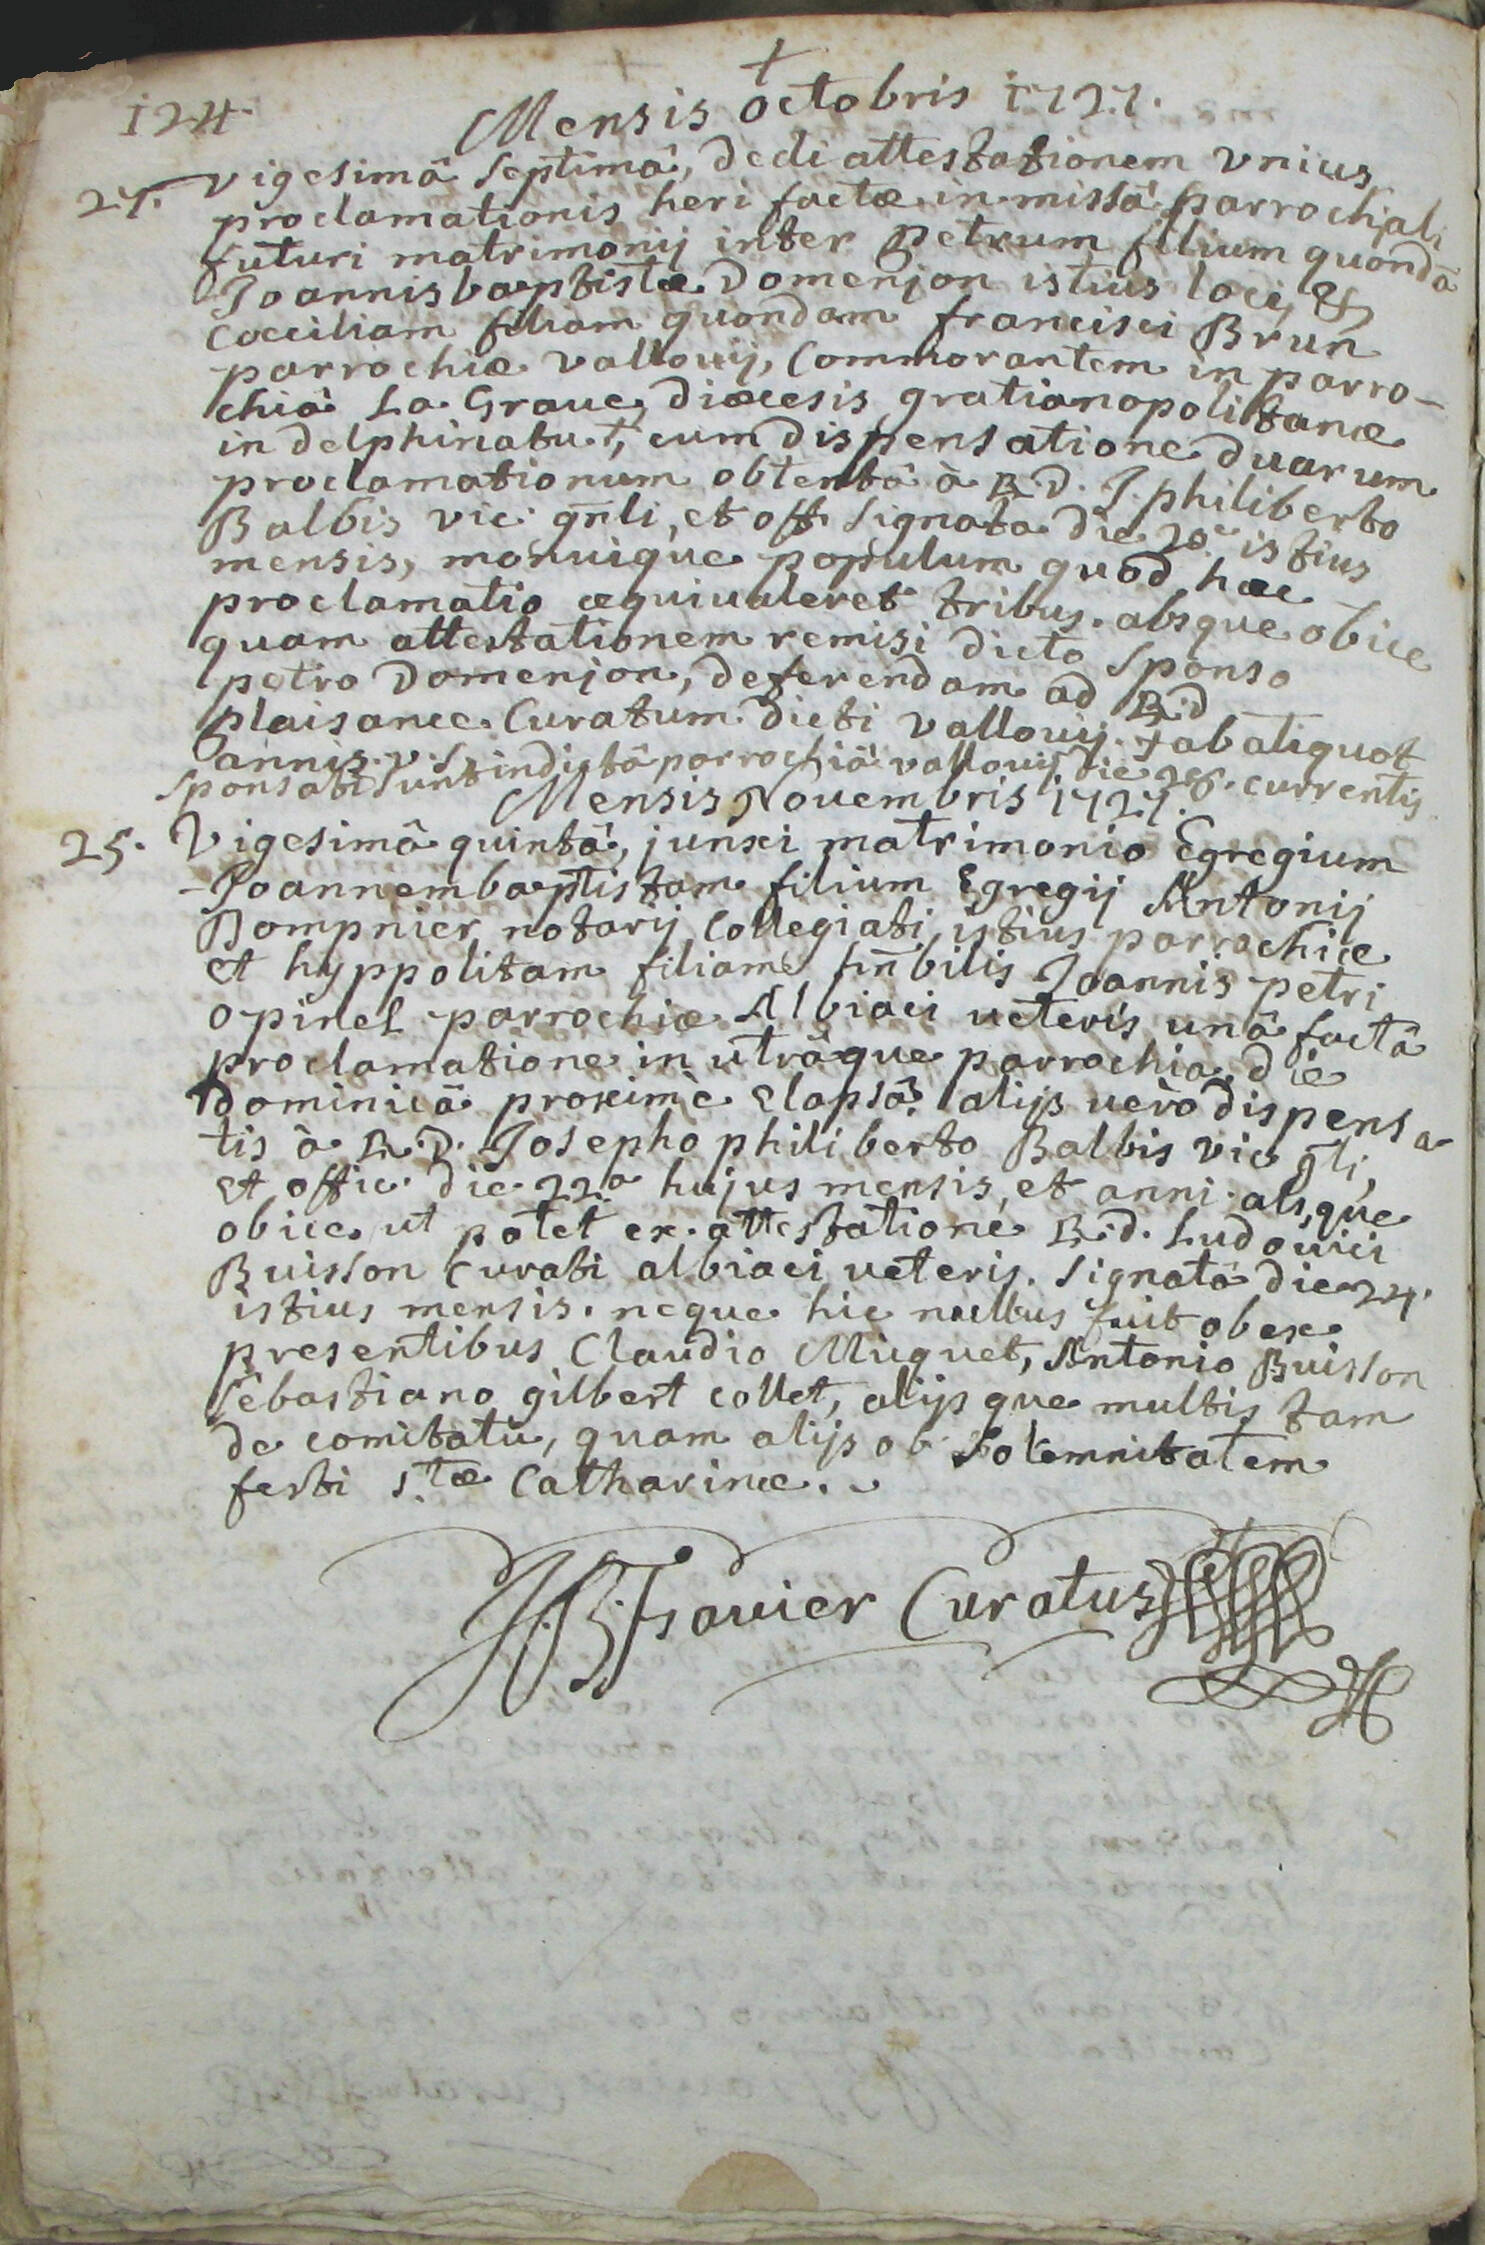 +
124. Mensis octobris 1727.
27. vigesimâ septimâ, dedi attestationem vnius
proclamationis heri factæ in missâ parrochiali
futuri matrimonij inter petrum filium quondã
Joannisbaptistæ Domenjon istius loci, &
Cœciliam filiam quondam francisci Brun
parrochiæ vallouij, Commorantem in parro-
chiâ La Graue, diœcesis gratianopolitanæ
in delphinatu +, cum dispensatione duarum
proclamationum obtentâ à R D. J. philiberto
Balbis vic. gñli, et off. signata die 20.a istius
mensis, monuique populum quod hæc
proclamatio æquiualeret tribus. absque obice
quam attestationem remisi dicto sponso
petro Domenjon, deferendam ad R.d
plaisance Curatum dicti vallouij. + ab aliquot
annis. v. s.
sponsati sunt in dictâ parrochiâ vallouij die 28. currentis
Mensis Nouembris 1727.
25. Vigesimâ quintâ, junxi matrimonio Egregium
-Joannembaptistam filium Egregij Antonij
Dompnier notarij Collegiati, istius parrochiæ
et hyppolitam filiam hñbilis Joannis petri
opinel parrochiæ Albiaci ueteris unâ factâ
proclamatione in utrâque parrochia, die
dominicâ proximè Elapsâ, alijs uerò dispensa-
tis à R.D. Josepho philiberto Balbis vic gli,
et offic. die 22.a hujus mensis, et anni. absque
obice ut patet ex attestatione R.d. Ludouici
Buisson Curati albiaci ueteris. signatâ die 24.
istius mensis. neque hic nullus fuit obex
presentibus Claudio Muguet, Antonio Buisson
sebastiano gilbert collet, alijsque multis tam
de comitatu, quam alijs ob solemnitatem
festi s.tæ Catharinæ.
Curatus